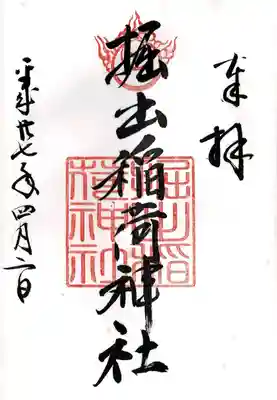 奉拝
掘出稲荷神社
掘出稲
荷神社
平成廿七年四月二日